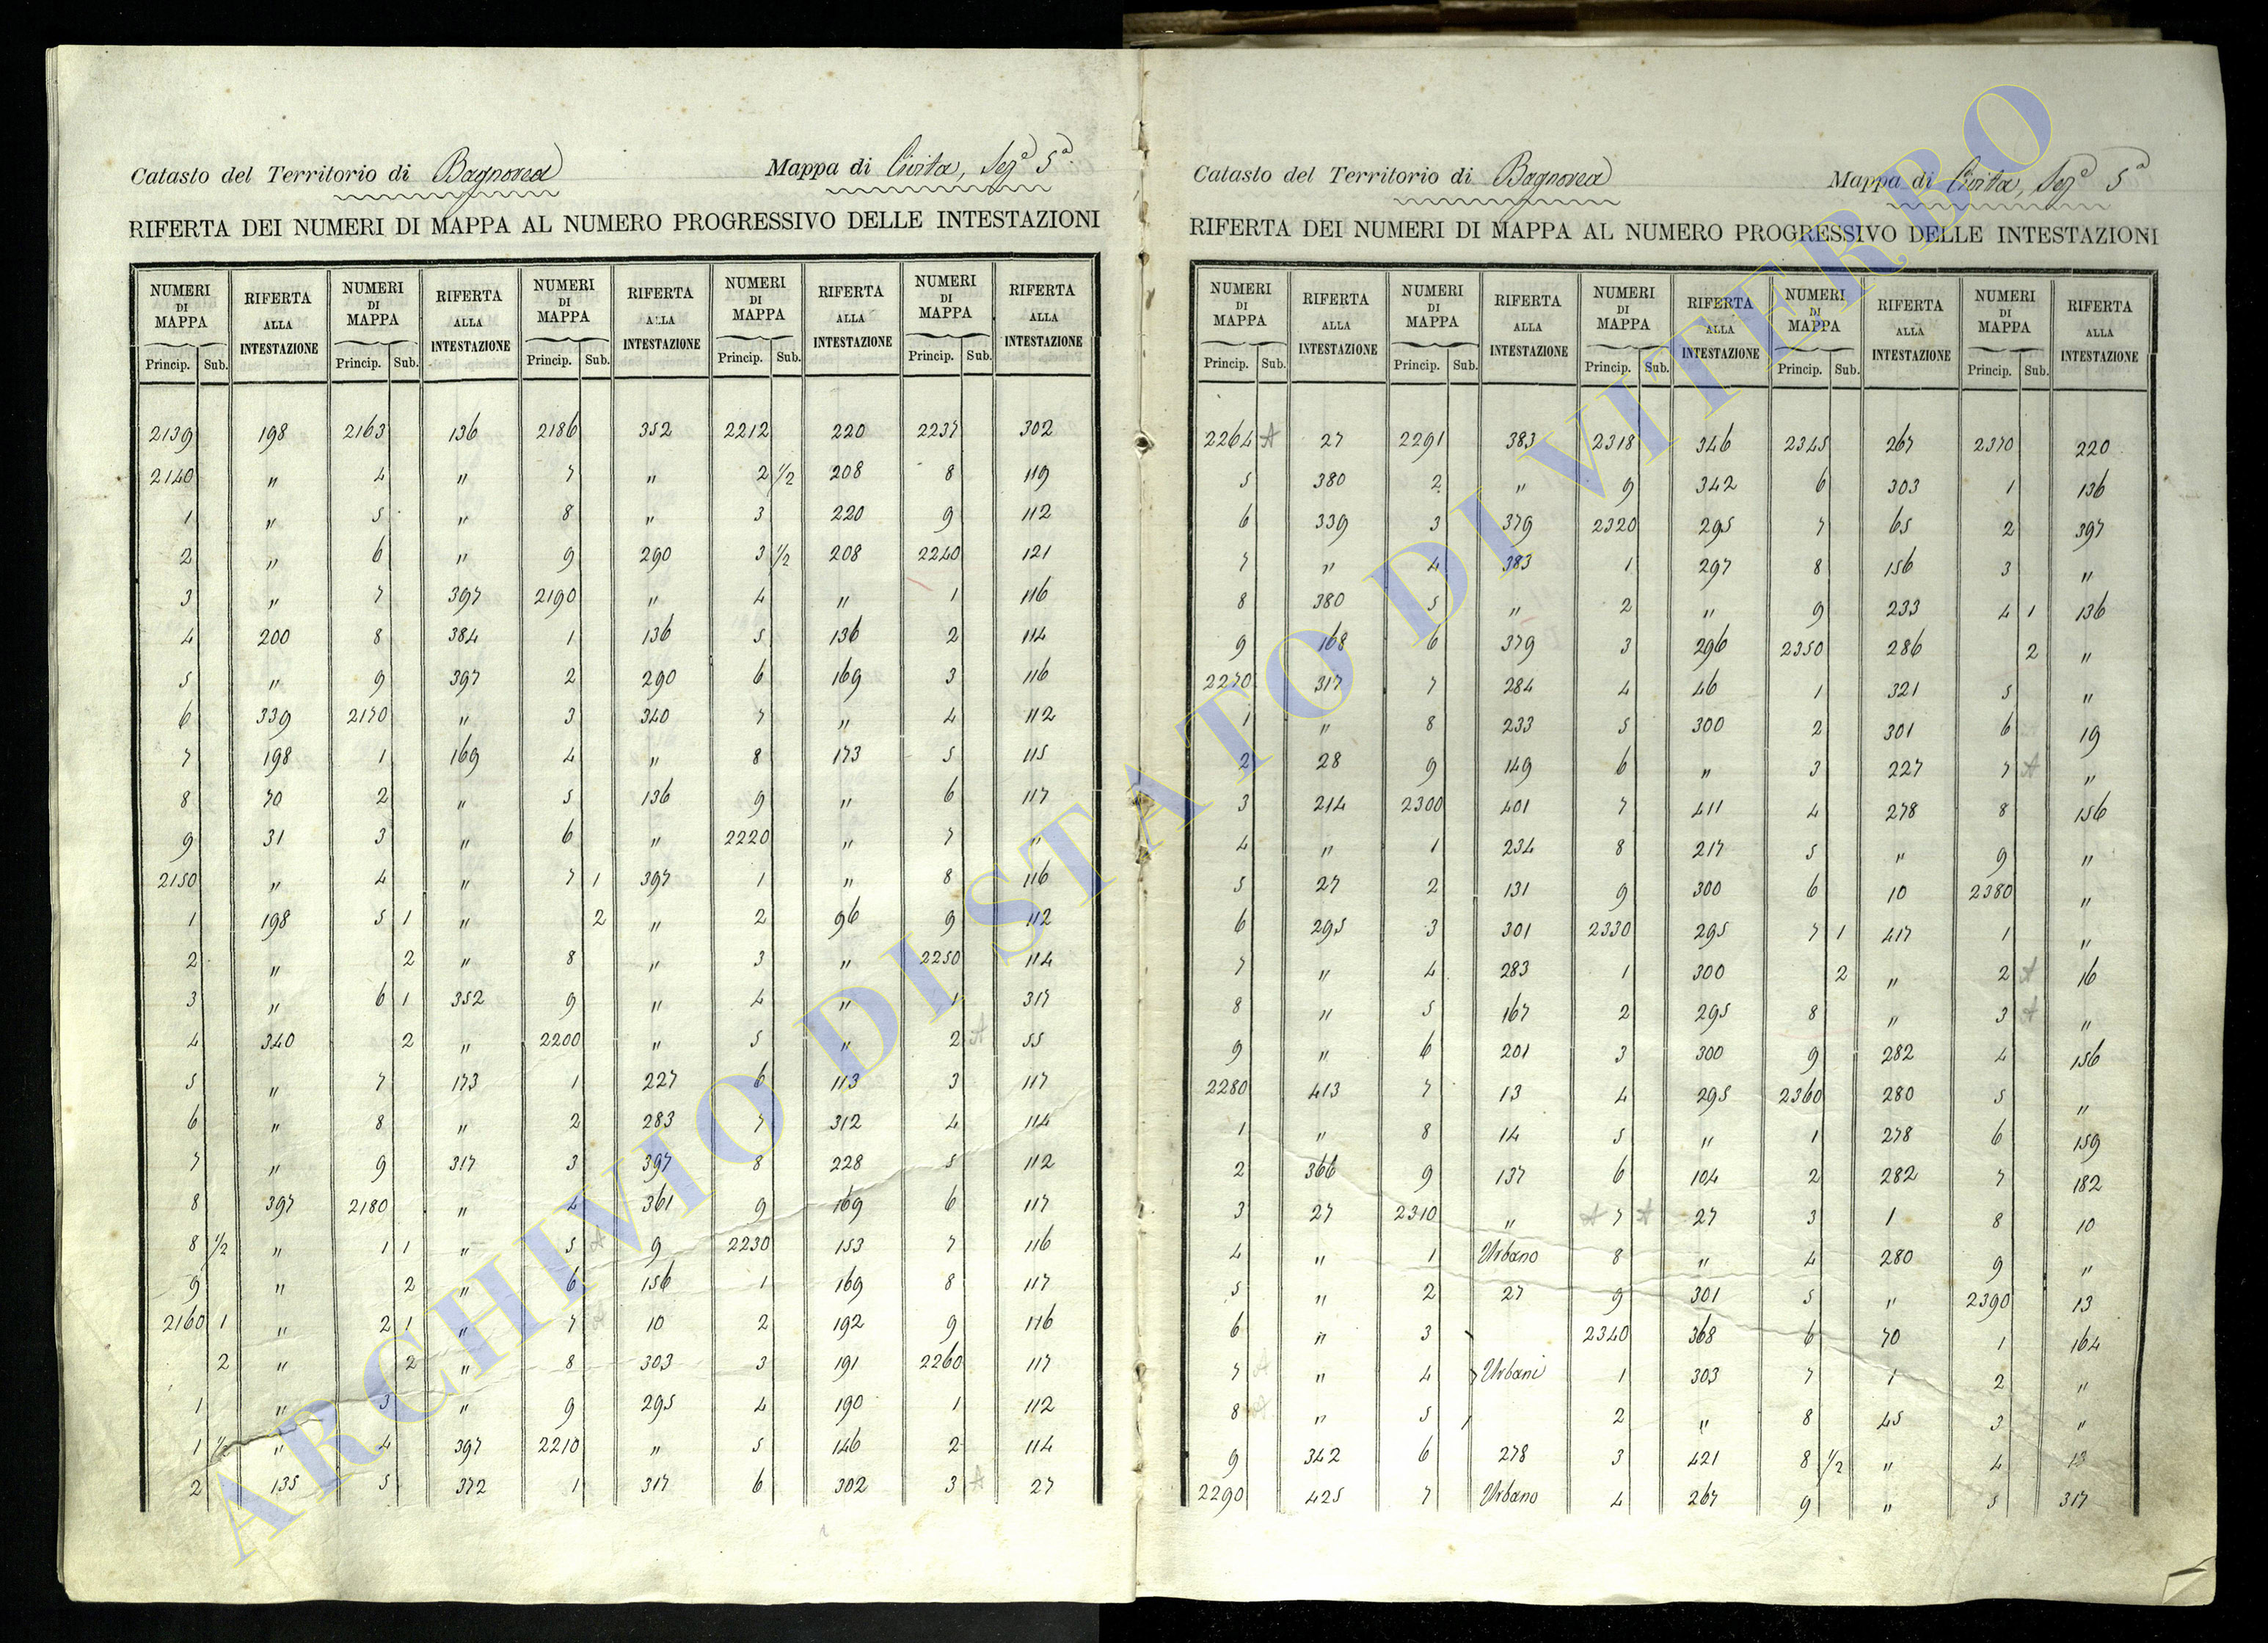 Catasto del Territorio di Bagnorea Mappa di Civita, Sezª 5ª
RIFERTA DEI NUMERI DI MAPPA AL NUMERO PROGRESSIVO DELLE INTESTAZIONI
NUMERI DI MAPPA RIFERTA ALLA INTESTAZIONE NUMERI DI MAPPA RIFERTA ALLA INTESTAZIONE NUMERI DI MAPPA RIFERTA ALLA INTESTAZIONE NUMERI DI MAPPA RIFERTA ALLA INTESTAZIONE NUMERI DI MAPPA RIFERTA ALLA INTESTAZIONE
Princip. Sub. Princip. Sub. Princip. Sub. Princip. Sub. Princip. Sub.
2139 198 2163 136 2186 352 2212 220 2237 302
2140 " 4 " 7 " 2 1/2 208 8 119
1 " 5 " 8 " 3 220 9 112
2 " 6 " 9 290 3 1/2 208 2240 121
3 " 7 397 2190 " 4 " 1 116
4 200 8 384 1 136 5 136 2 114
5 " 9 397 2 290 6 169 3 116
6 339 2170 " 3 340 7 " 4 112
7 198 1 169 4 " 8 173 5 115
8 70 2 " 5 136 9 " 6 117
9 31 3 " 6 " 2220 " 7 "
2150 " 4 " 7 1 397 1 " 8 116
1 198 5 1 " 2 " 2 96 9 112
2 " 2 " 8 " 3 " 2250 114
3 " 6 1 352 9 " 4 " 1 317
4 340 2 " 2200 " 5 " 2 A 55
5 " 7 173 1 227 6 113 3 117
6 " 8 " 2 283 7 312 4 114
7 " 9 317 3 397 8 228 5 112
8 397 2180 " 4 361 9 169 6 117
8 1/2 " 1 1 " 5 A 9 2230 153 7 116
9 " 2 " 6 156 1 169 8 117
2160 1 " 2 1 " 7 A 10 2 192 9 116
2 " 2 " 8 303 3 191 2260 117
1 " 3 " 9 295 4 190 1 112
1 1/2 " 4 397 2210 " 5 146 2 114
2 135 5 372 1 317 6 302 3 A 27
Catasto del Territorio di Bagnorea Mappa di Civita, Sezª 5ª
RIFERTA DEI NUMERI DI MAPPA AL NUMERO PROGRESSIVO DELLE INTESTAZIONI
NUMERI DI MAPPA RIFERTA ALLA INTESTAZIONE NUMERI DI MAPPA RIFERTA ALLA INTESTAZIONE NUMERI DI MAPPA RIFERTA ALLA INTESTAZIONE NUMERI DI MAPPA RIFERTA ALLA INTESTAZIONE NUMERI DI MAPPA RIFERTA ALLA INTESTAZIONE
Princip. Sub. Princip. Sub. Princip. Sub. Princip. Sub. Princip. Sub.
2264 A 27 2291 383 2318 346 2345 267 2370 220
5 380 2 " 9 342 6 303 1 136
6 339 3 379 2320 295 7 65 2 397
7 " 4 383 1 297 8 156 3 "
8 380 5 " 2 " 9 233 4 1 136
9 168 6 379 3 296 2350 286 2 "
2270 317 7 284 4 46 1 321 5 "
1 " 8 233 5 300 2 301 6 19
2 28 9 149 6 " 3 227 7 A "
3 214 2300 401 7 411 4 278 8 156
4 " 1 234 8 217 5 " 9 "
5 27 2 131 9 300 6 10 2380 "
6 295 3 301 2330 295 7 1 417 1 "
7 " 4 283 1 300 2 " 2 A 16
8 " 5 167 2 295 8 " 3 A "
9 " 6 201 3 300 9 282 4 156
2280 413 7 13 4 295 2360 280 5 "
1 " 8 14 5 " 1 278 6 159
2 366 9 137 6 104 2 282 7 182
3 27 2310 " A 7 A 27 3 1 8 10
4 " 1 Urbano 8 " 4 280 9 "
5 " 2 27 9 301 5 " 2390 13
6 " 3 2340 368 6 70 1 164
7 A " 4 Urbani 1 303 7 1 2 "
8 A " 5 2 " 8 45 3 "
9 342 6 278 3 421 8 1/2 " 4 13
2290 425 7 Urbano 4 267 9 " 5 317
ARCHIVIO DI STATO DI VITERBO